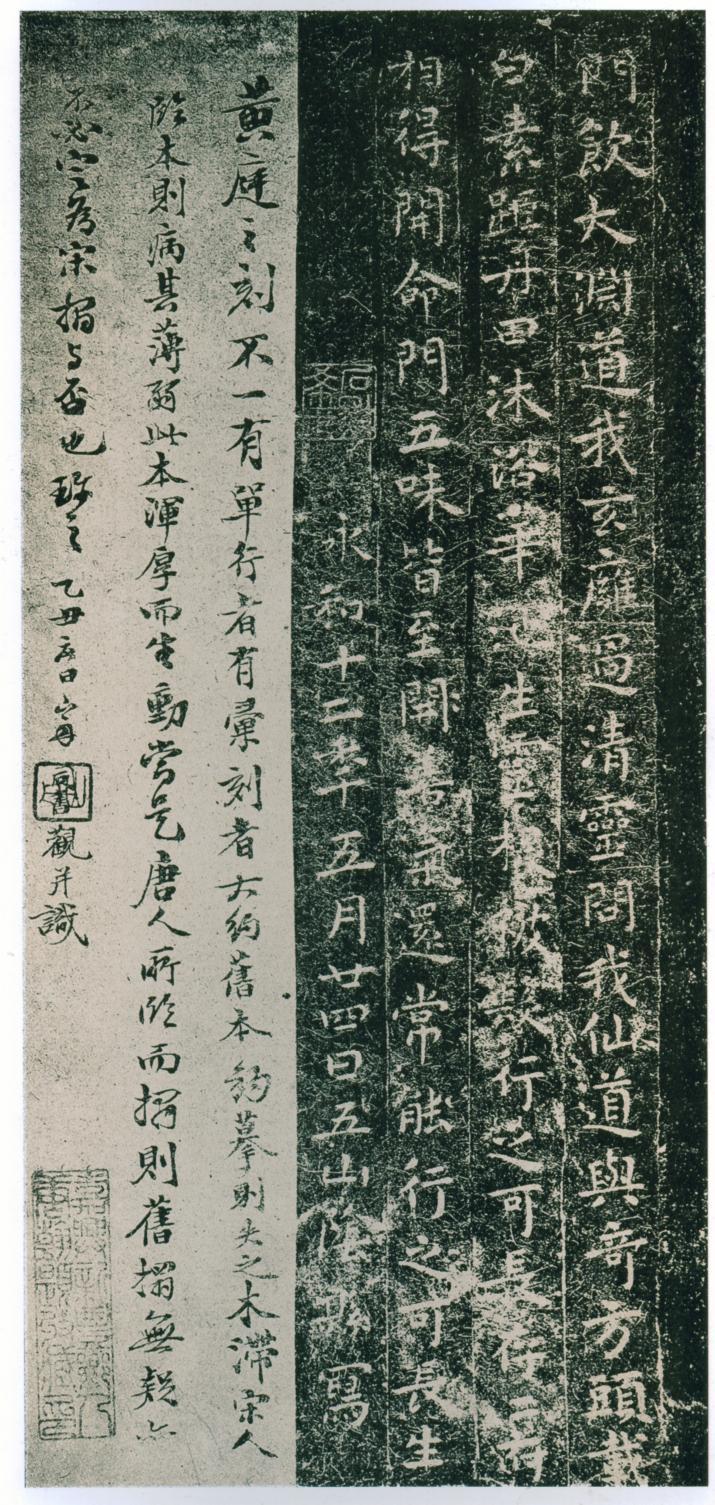 門飲大淵道我玄廱過清靈問我仙道與奇方頭載
白素距丹田沐浴華池生靈根被髮行之可長存二府
相得開命門五味皆至開善氣還常能行之可長生
永和十二年五月廿四日五山陰縣寫
黃庭之刻不一有單行者有彙刻者大約舊本鈎摹則失之木滯宋人
臨本則病其薄弱此本渾厚而生動當是唐人所臨而搨則舊搨無疑亦
不必定為宋搨與否也珍之乙丑
觀并識